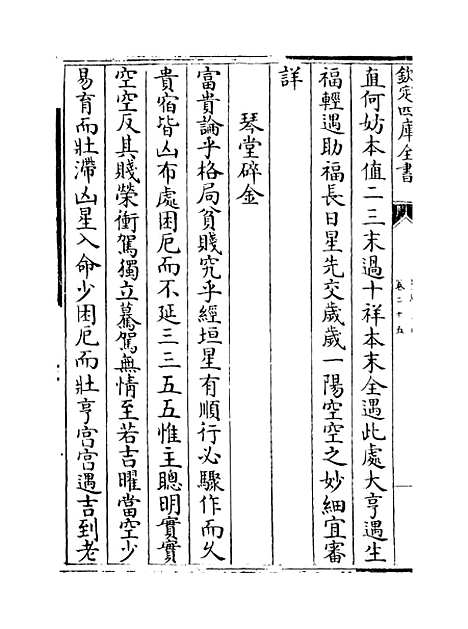 欽定四庫全書
卷二十五
直何妨本值二三末過十祥本末全遇此處大亨遇生
福輕遇助福長日星先交歲歲一陽空空之妙細宜審
詳
琴堂碎金
富貴論乎格局貧賤究乎經垣星有順行必驟作而久
貴宿皆凶布處困厄而不延三三五五惟主聰明實實
空空反其賤榮衝駕獨立驀駕無情至若吉曜當空少
易育而壯滯凶星入命少困厄而壯亨宮宮遇吉到老